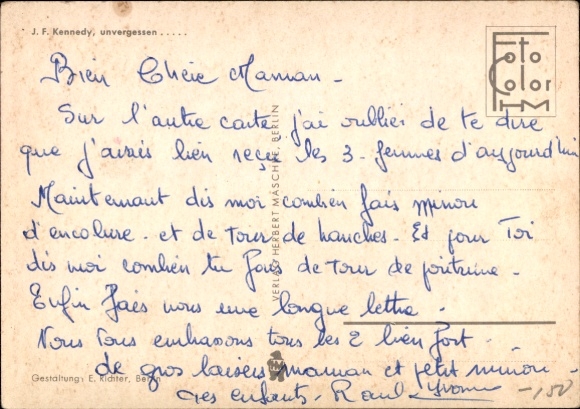 J. F. Kennedy, unvergessen . . . . .
Foto
Color
FTM
Bien Chère Maman -
Sur l'autre carte j'ai oublier de te dire
que j'avais bien reçu les 3 - femmes d'aujourd'hui
Maintenant dis moi combien fais minou
d'encolure - et de tour de hanches - Et pour Toi
dis moi combien tu fais de tour de poitrine -
Enfin fais nous une longue lettre -
Nous vous embrassons tous les 2 bien fort -
de gros baisers maman et petit minou -
Tes enfants - Raoul Yvonne
VERLAG HERBERT MASCHKE, BERLIN
Gestaltung: E. Richter, Berlin
-,50